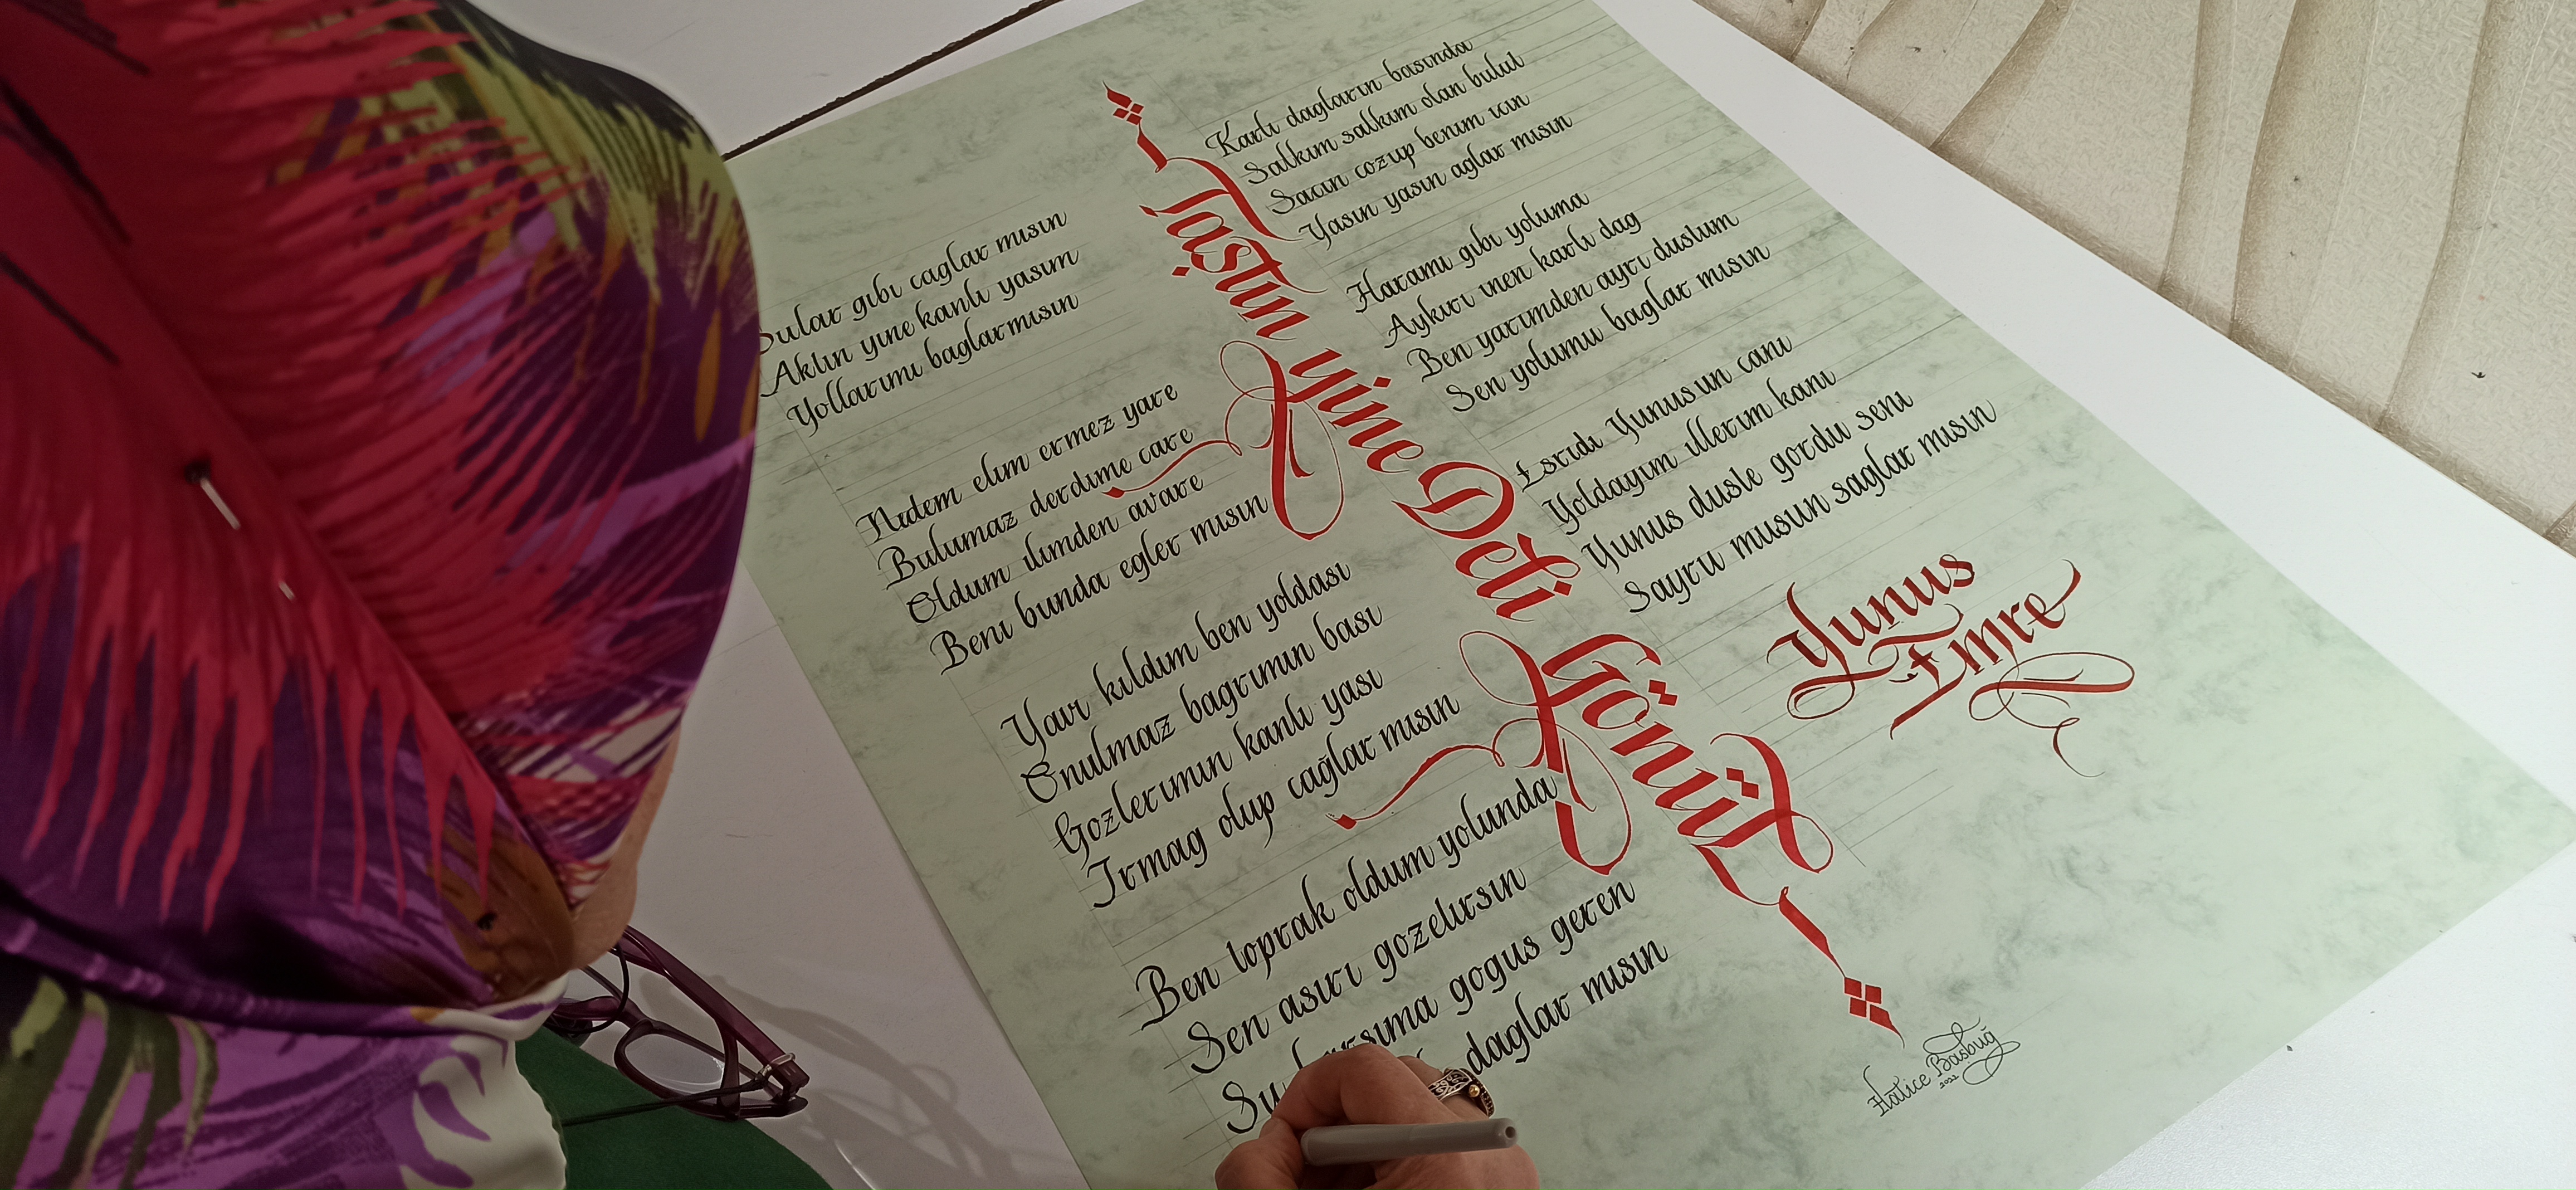 Taştın yine Deli Gönül
Sular gıbı caglar mısın
Aktın yıne kanlı yasım
Yollarımı baglarmısın
Nıdem elım ermez yare
Bulumaz derdıme care
Oldum ılımden avare
Benı bunda egler mısın
Yavı kıldım ben yoldası
Onulmaz bagrımın bası
Gozlerımın kanlı yası
Irmag olup cağlar mısın
Ben toprak oldum yolunda
Sen asırı gozelırsın
Su karsıma gogus geren
daglar mısın
Karlı dagların basında
Salkım salkım olan bulut
Sacın cozup benım ıcın
Yasın yasın aglar mısın
Haramı gıbı yoluma
Aykırı ınen karlı dag
Ben yarımden ayrı dustum
Sen yolumu baglar mısın
Esrıdı Yunusun canı
Yoldayım ıllerım kanı
Yunus dusle gordu senı
Sayru musun saglar mısın
Yunus
Emre
Hatice Basbuğ
2022